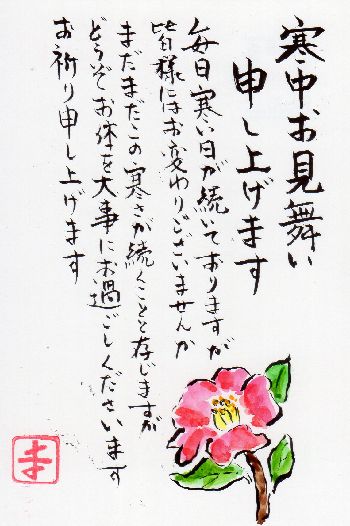 寒中お見舞い
申し上げます
毎日寒い日が続いておりますが
皆様にはお変わりございませんか
まだまだこの寒さが続くことと存じますが
どうぞお体を大事にお過ごしくださいます
お祈り申し上げます